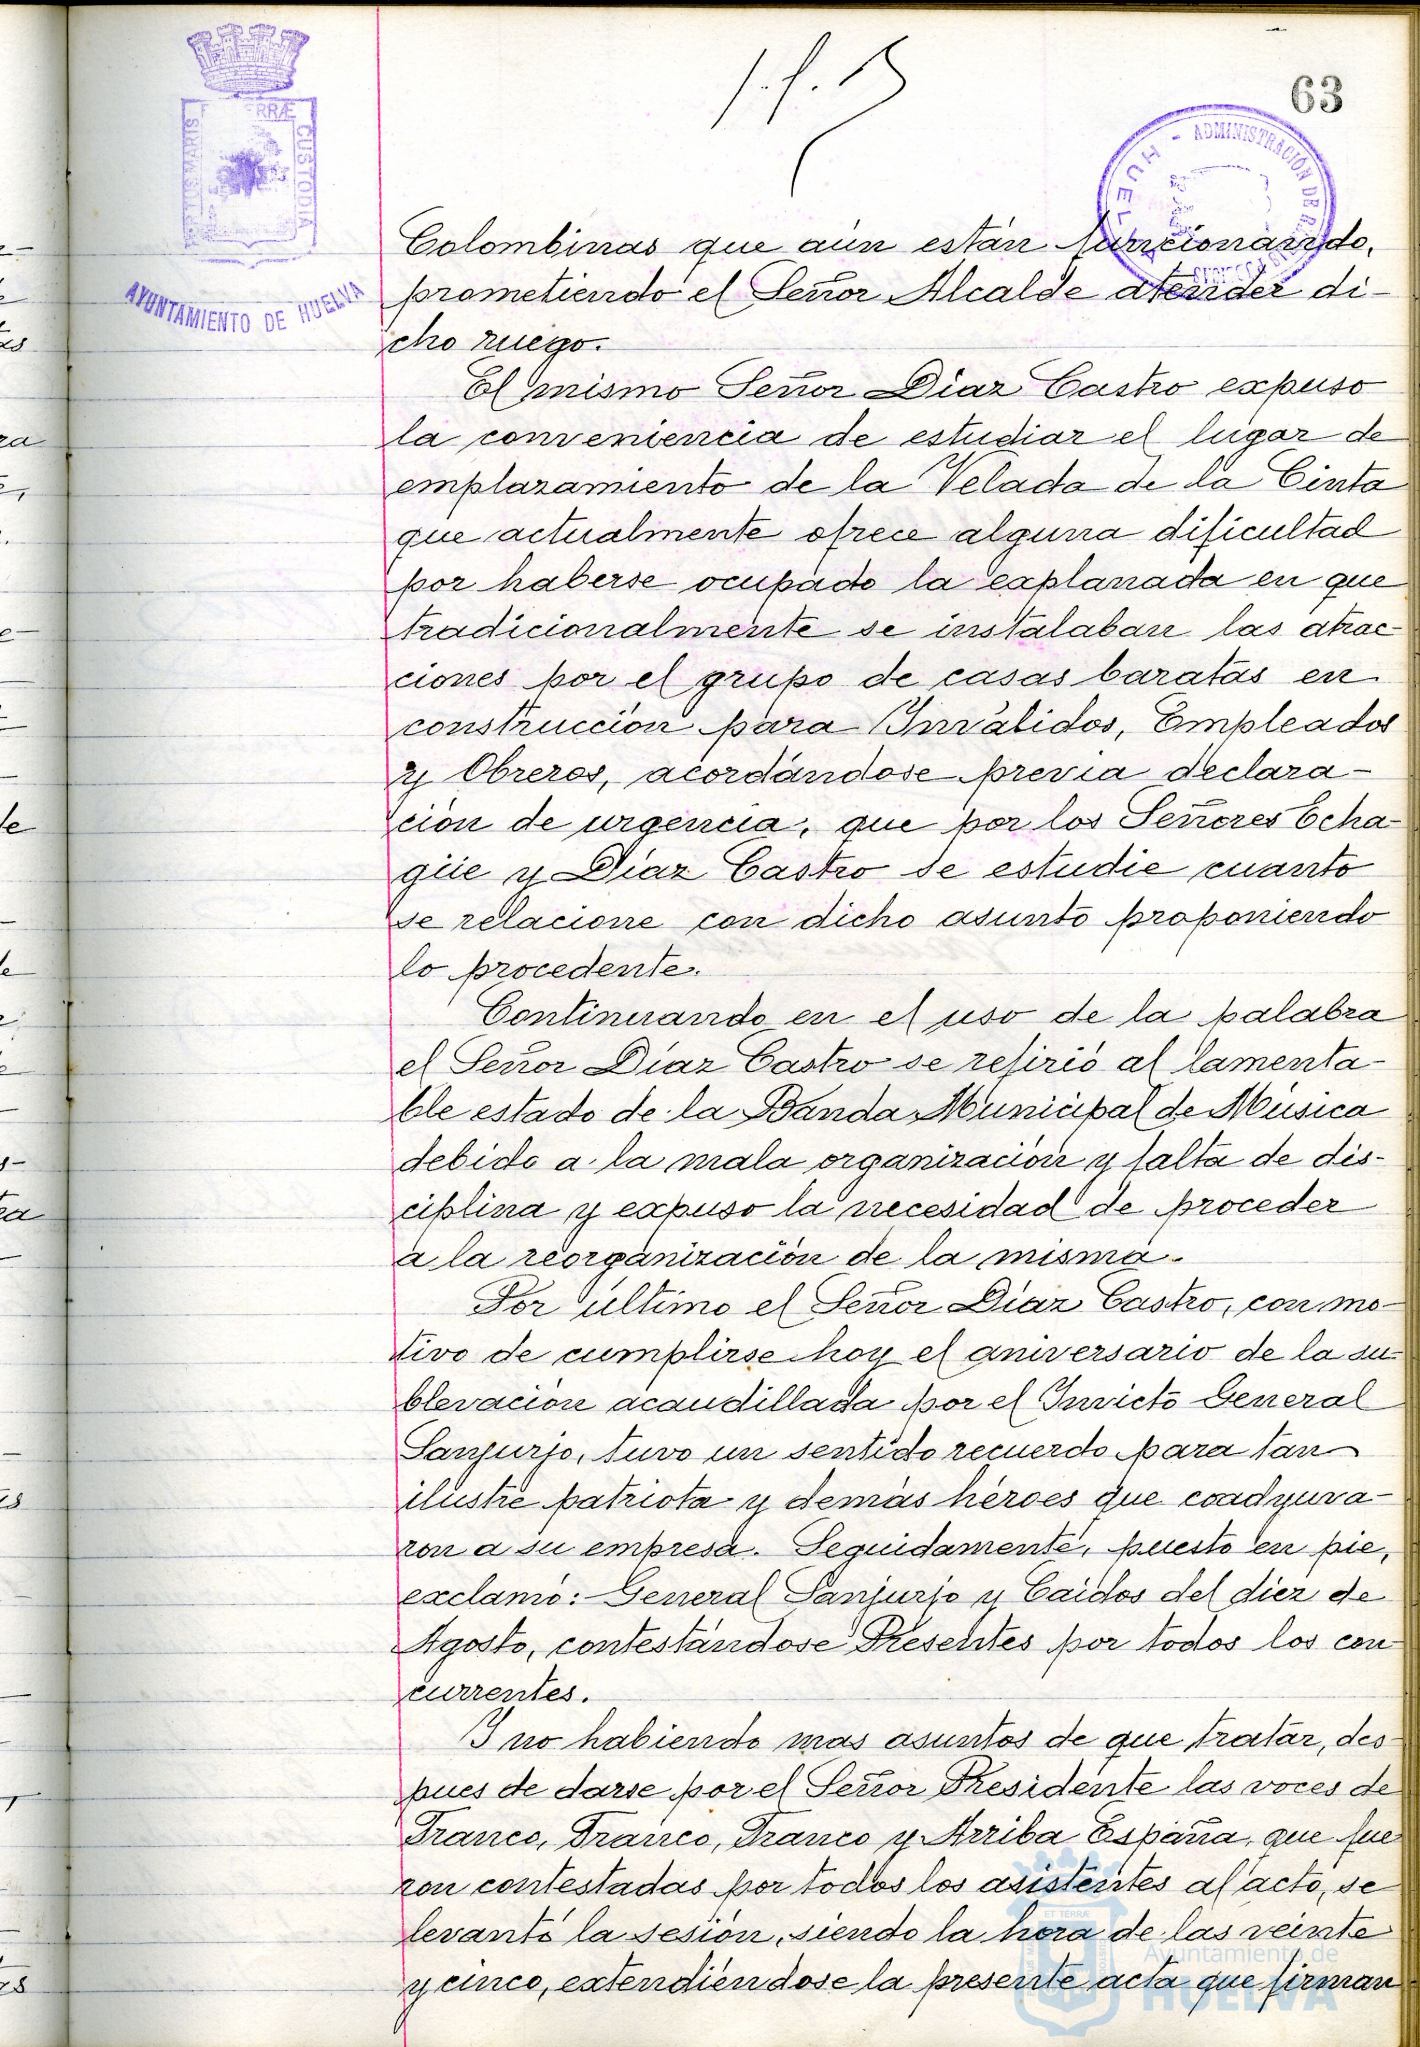 63
PORTUS MARIS ET TERRÆ CUSTODIA
AYUNTAMIENTO DE HUELVA
HUELVA - ADMINISTRACIÓN DE
Colombinas que aún están funcionando,
prometiendo el Señor Alcalde atender di-
cho ruego.
El mismo Señor Díaz Castro expuso
la conveniencia de estudiar el lugar de
emplazamiento de la Velada de la Cinta
que actualmente ofrece alguna dificultad
por haberse ocupado la explanada en que
tradicionalmente se instalaban las atrac-
ciones por el grupo de casas baratas en
construcción para Inválidos, Empleados
y Obreros, acordándose previa declara-
ción de urgencia, que por los Señores Echa-
güe y Díaz Castro se estudie cuanto
se relacione con dicho asunto proponiendo
lo procedente.
Continuando en el uso de la palabra
el Señor Díaz Castro se refirió al lamenta-
ble estado de la Banda Municipal de Música
debido a la mala organización y falta de dis-
ciplina y expuso la necesidad de proceder
a la reorganización de la misma.
Por último el Señor Díaz Castro, con mo-
tivo de cumplirse hoy el aniversario de la su-
blevación acaudillada por el Invicto General
Sanjurjo, tuvo un sentido recuerdo para tan
ilustre patriota y demás héroes que coadyuva-
ron a su empresa. Seguidamente, puesto en pie,
exclamó: General Sanjurjo y Caidos del diez de
Agosto, contestándose Presentes por todos los con
currentes.
Y no habiendo mas asuntos de que tratar, des-
pues de darse por el Señor Presidente las voces de
Franco, Franco, Franco y Arriba España, que fue
ron contestadas por todos los asistentes al acto, se
levantó la sesión, siendo la hora de las veinte
y cinco, extendiéndose la presente acta que firman
Ayuntamiento de
HUELVA